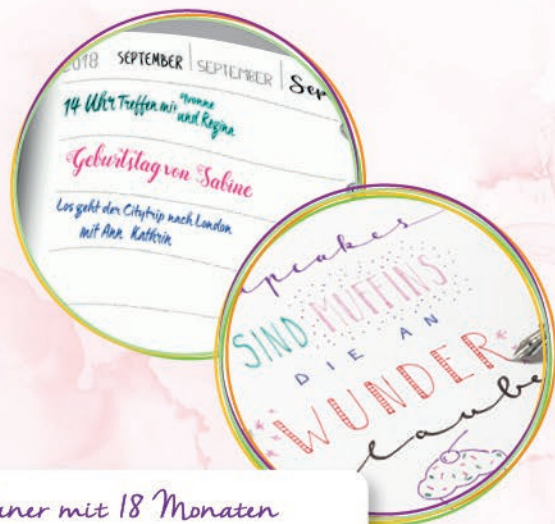 2018 SEPTEMBER SEPTEMBER Sep
14 Uhr Treffen mit Yvonne
und Regina
Geburtstag von Sabine
Los geht der Citytrip nach London
mit Ann Kathrin
pcakes
SIND MUFFINS
DIE AN
WUNDER
laube
ner mit 18 Monaten